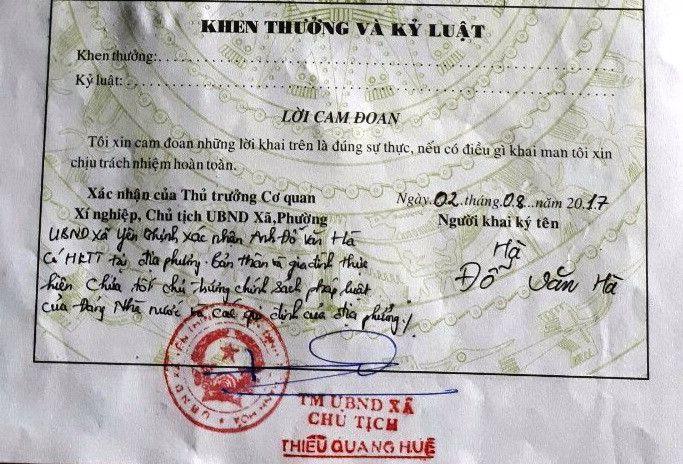 KHEN THƯỞNG VÀ KỶ LUẬT
Khen thưởng:
Kỷ luật:
LỜI CAM ĐOAN
Tôi xin cam đoan những lời khai trên là đúng sự thực, nếu có điều gì khai man tôi xin
chịu trách nhiệm hoàn toàn.
Xác nhận của Thủ trưởng Cơ quan
Xí nghiệp, Chủ tịch UBND Xã,Phường
Ngày.02.tháng.08...năm 2017
Người khai ký tên
UBND Xã Yên Thịnh Xác nhận Anh Đỗ Văn Hà
Có HKTT tại địa phương. Bản thân và gia đình thực
hiện Chưa tốt chủ trương chính sách pháp luật
của Đảng Nhà nước và Các quy định của địa phương/.
Hà
Đỗ Văn Hà
TM UBND XÃ
CHỦ TỊCH
THIỀU QUANG HUÊ